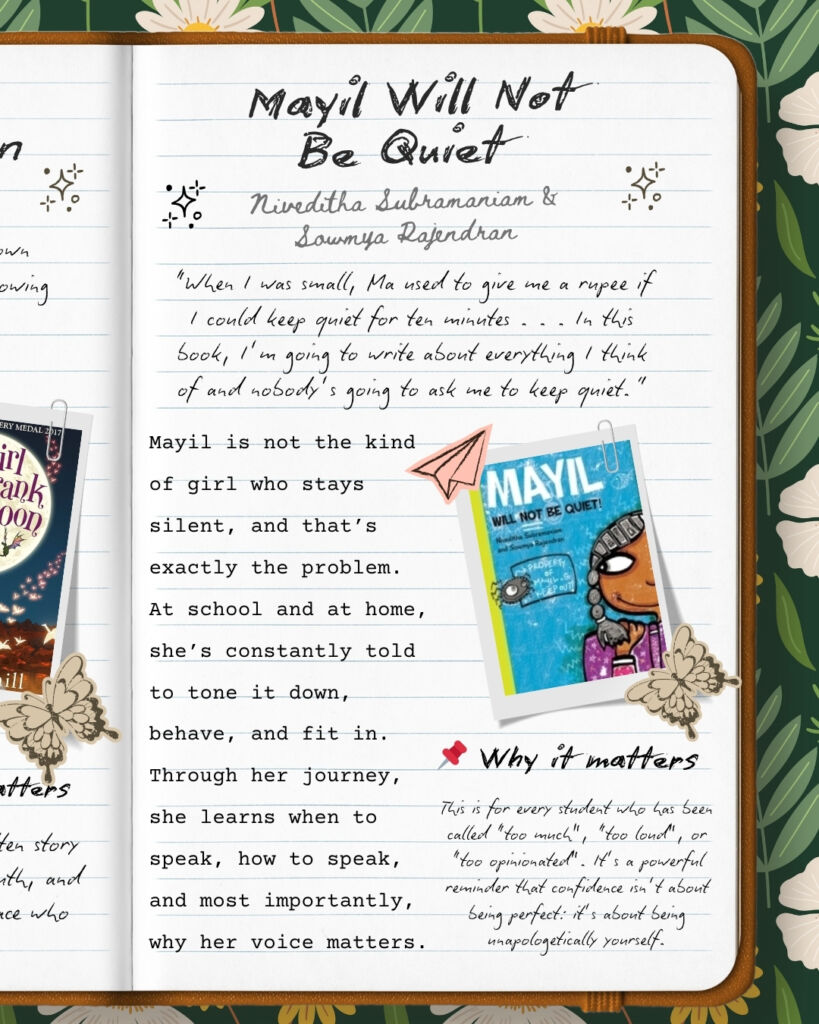 n
own
owing
ERY MEDAL 2017
irl
rank
oon
ill
atters
ten story
uth, and
ace who
Mayil Will Not
Be Quiet
Niveditha Subramaniam &
Sowmya Rajendran
"When I was small, Ma used to give me a rupee if
I could keep quiet for ten minutes . . . In this
book, I'm going to write about everything I think
of and nobody's going to ask me to keep quiet."
Mayil is not the kind
of girl who stays
silent, and that's
exactly the problem.
At school and at home,
she's constantly told
to tone it down,
behave, and fit in.
Through her journey,
she learns when to
speak, how to speak,
and most importantly,
why her voice matters.
MAYIL
WILL NOT BE QUIET!
Niveditha Subramaniam
and Sowmya Rajendran
PROPERTY
OF
MAYIL.G
KEEP OUT!
Why it matters
This is for every student who has been
called "too much", "too loud", or
"too opinionated". It's a powerful
reminder that confidence isn't about
being perfect: it's about being
unapologetically yourself.